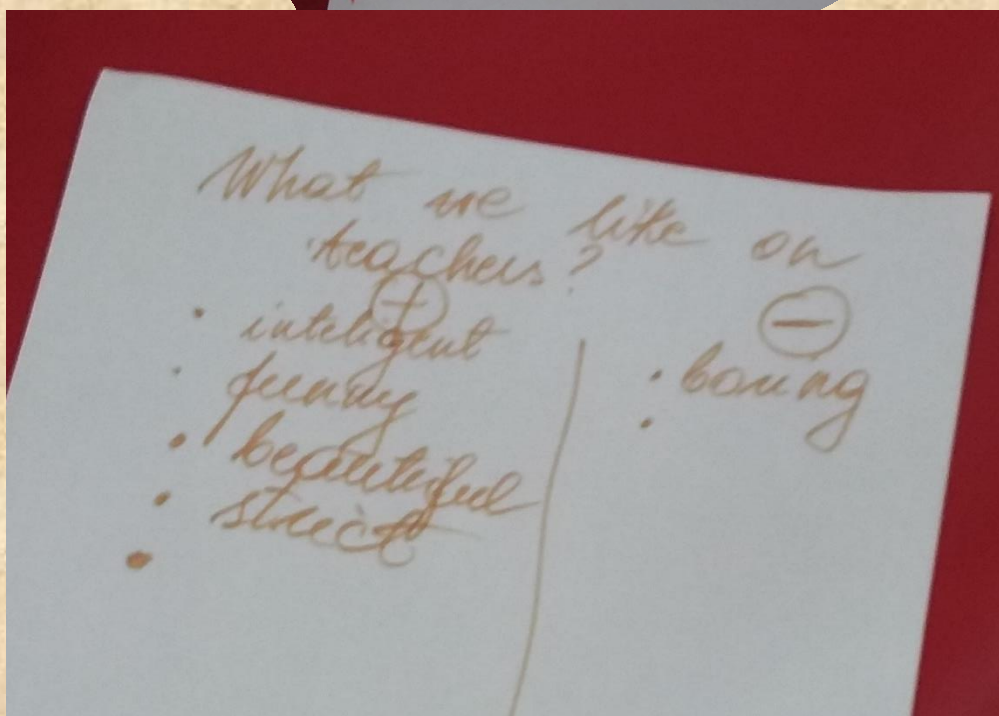 What we like on
teachers?
+
• inteligent
• funny
• beautiful
• strict
•
−
• boring
•